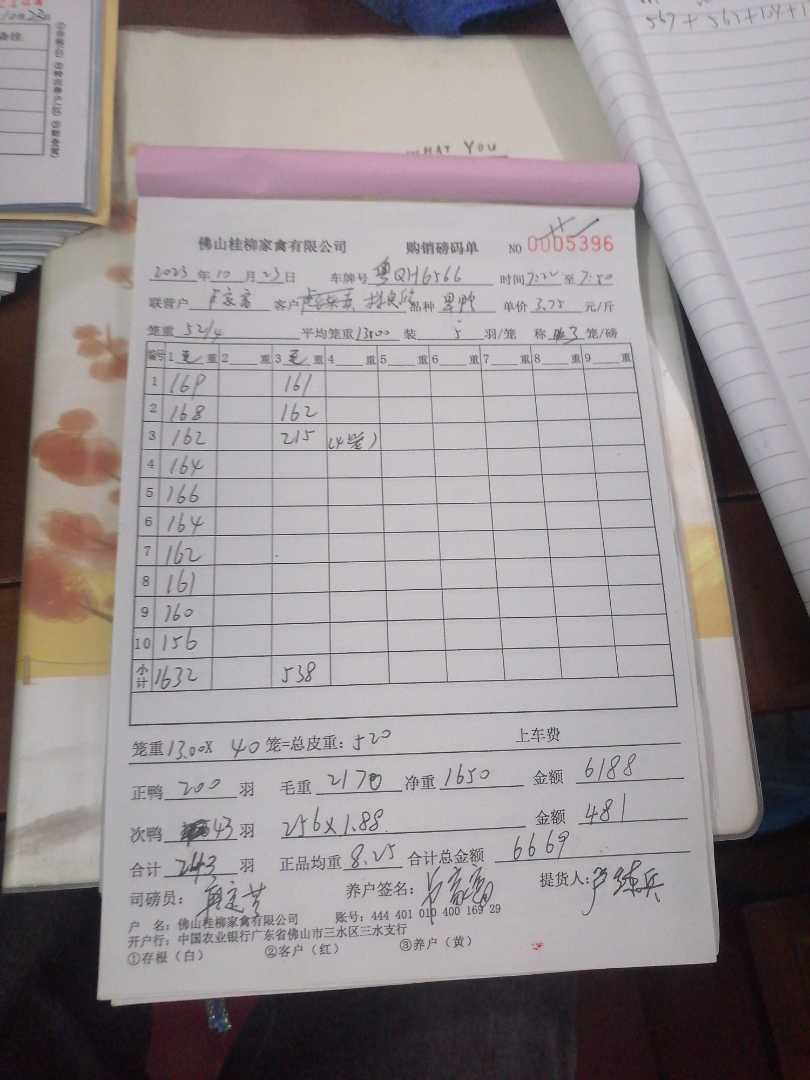 567+565+
备注
WHAT YOU
佛山桂柳家禽有限公司 购销磅码单 NO 0005396
2023年10月23日 车牌号 粤QH6566 时间 7:22 至 7:50
联营户 卢家富 客户 品种 单价 3.75 元/斤
笼重 52/4 平均笼重 13.00 装 5 羽/笼 称 3 笼/磅
编号 1 毛 重 2 重 3 毛 重 4 重 5 重 6 重 7 重 8 重 9 重
1 169 161
2 168 162
3 162 215 (4笼)
4 164
5 166
6 164
7 162
8 161
9 160
10 156
小计 1632 538
笼重 13.00 X 40 笼=总皮重: 520 上车费
正鸭 200 羽 毛重 2170 净重 1650 金额 6188
次鸭 43 羽 256×1.88 金额 481
合计 243 羽 正品均重 8.25 合计总金额 6669
司磅员: 养户签名: 卢家富 提货人:
户 名: 佛山桂柳家禽有限公司 账号: 444 401 010 400 169 29
开户行: 中国农业银行广东省佛山市三水区三水支行
①存根（白） ②客户（红） ③养户（黄）